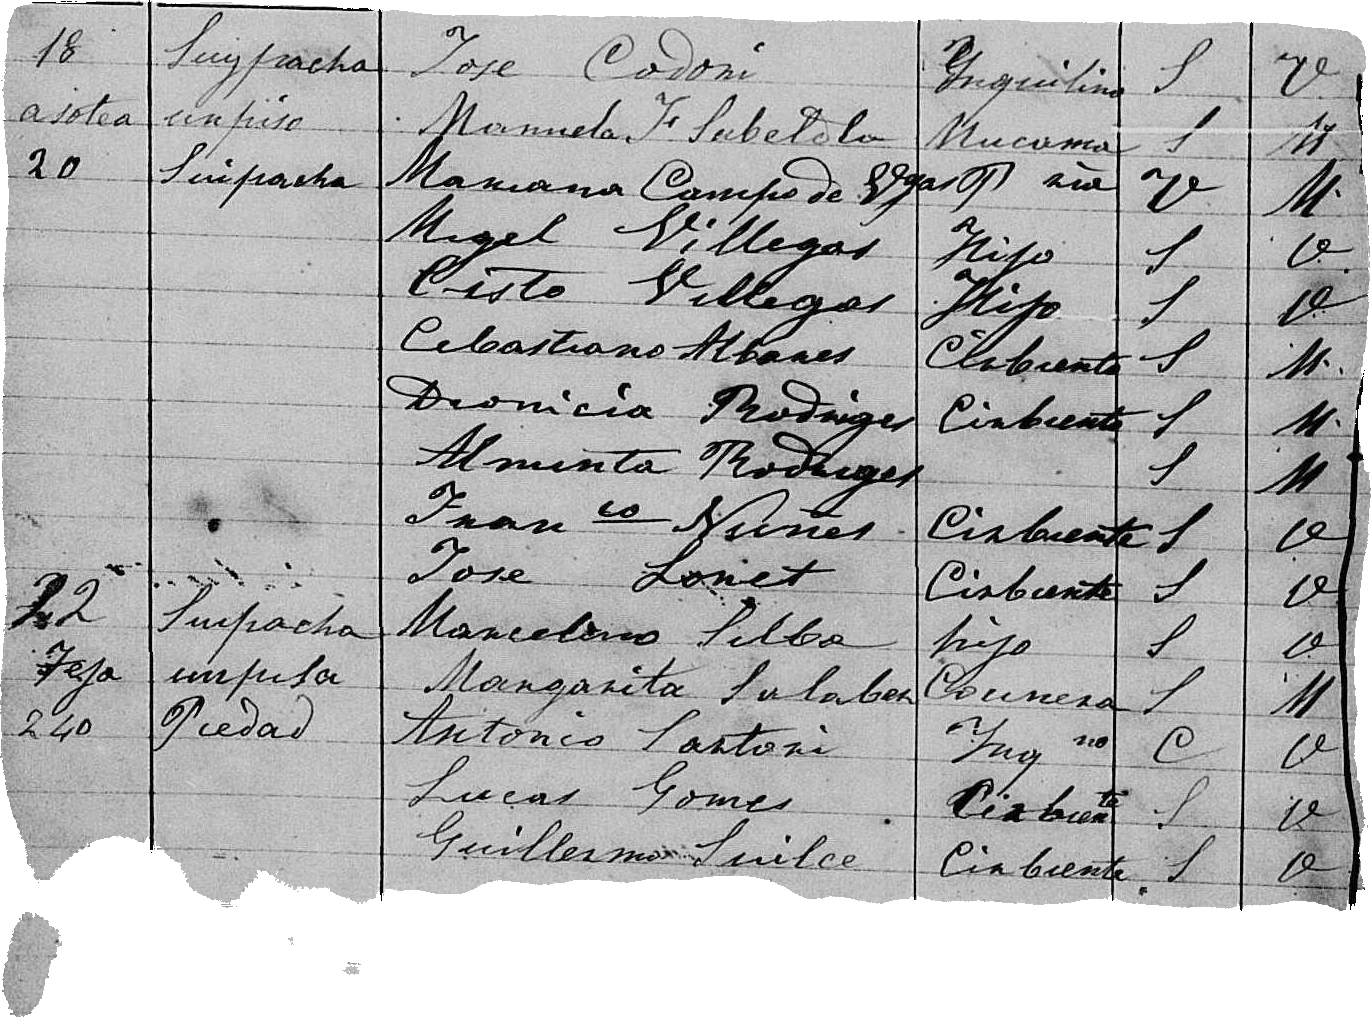 18 Suypacha Jose Codoni Ynquilino S V
asotea un piso Manuela F Subetola Mucama S M
20 Suipacha Mariana Campo de Vgas P ria V M
Migel Villegas Hijo S V
Cisto Villegas Hijo S V
Cebastiano Albares Cirbienta S M
Dionicia Rodriges Cirbienta S M
Alminta Rodriges S M
Franco Nuñes Cirbiente S V
Jose Lonet Cirbiente S V
22 Suipacha Marcelino Silba hijo S V
Teja un pisa Margarita Salaber Cocinera S M
240 Piedad Antonio Santoni Ynq no C V
Lucas Gomes Cirbiente S V
Guillermo Suilce Cirbiente S V